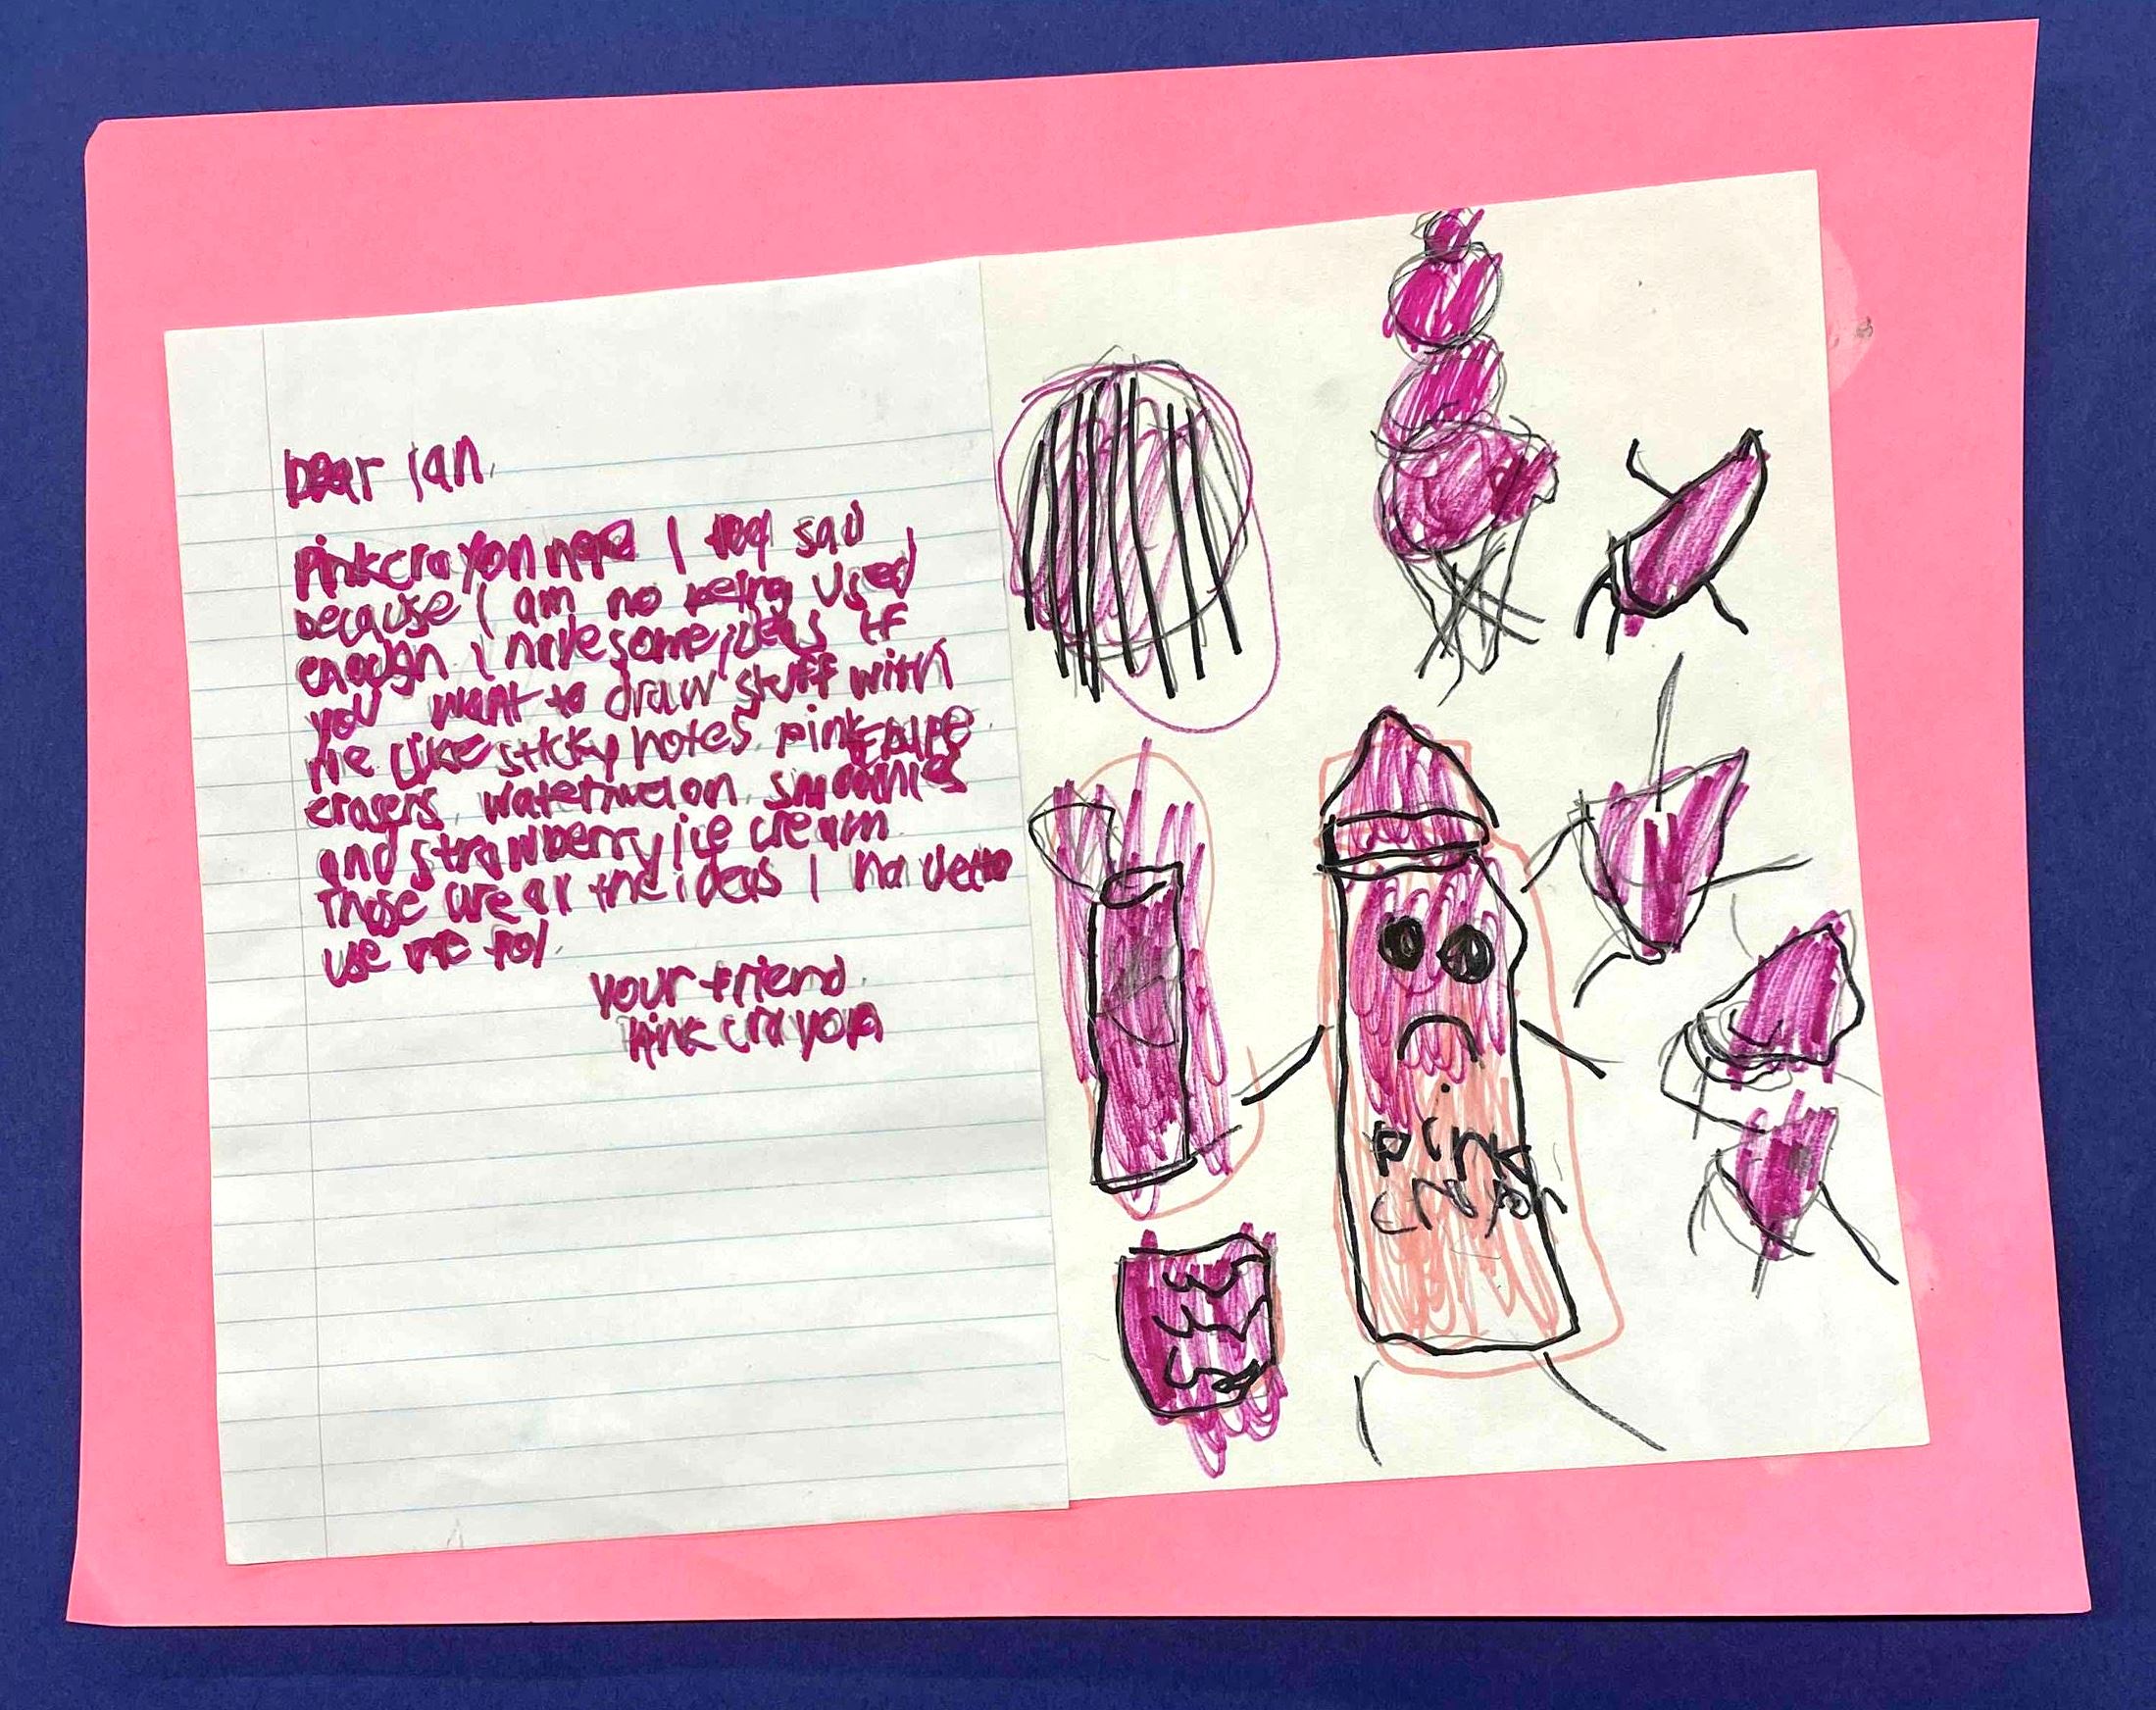 Dear Ian,
Pink crayon here I feel sad
because I am no being used
enough. I have some ideas if
you want to draw stuff with
me like sticky notes, pink
erasers, watermelon, smoothies
and strawberry ice cream.
Those are all the ideas I
use me for.
your friend,
Pink crayon
pink
crayon